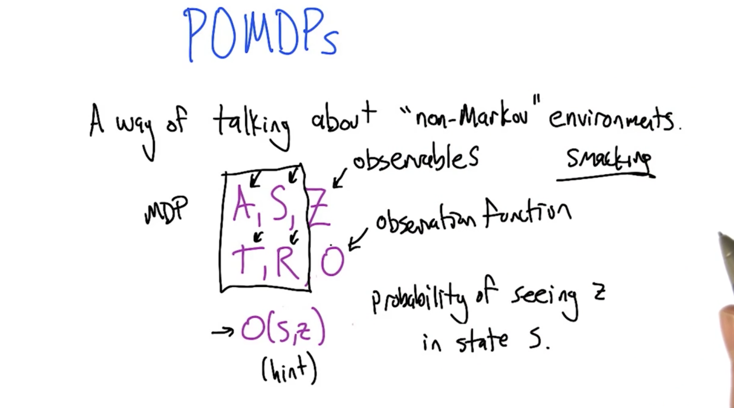 POMDPs
A way of talking about "non-Markov" environments.
observables
smacking
MDP
A, S, Z
observation function
T, R O
Probability of seeing z
→ O(s,z)
in state s.
(hint)